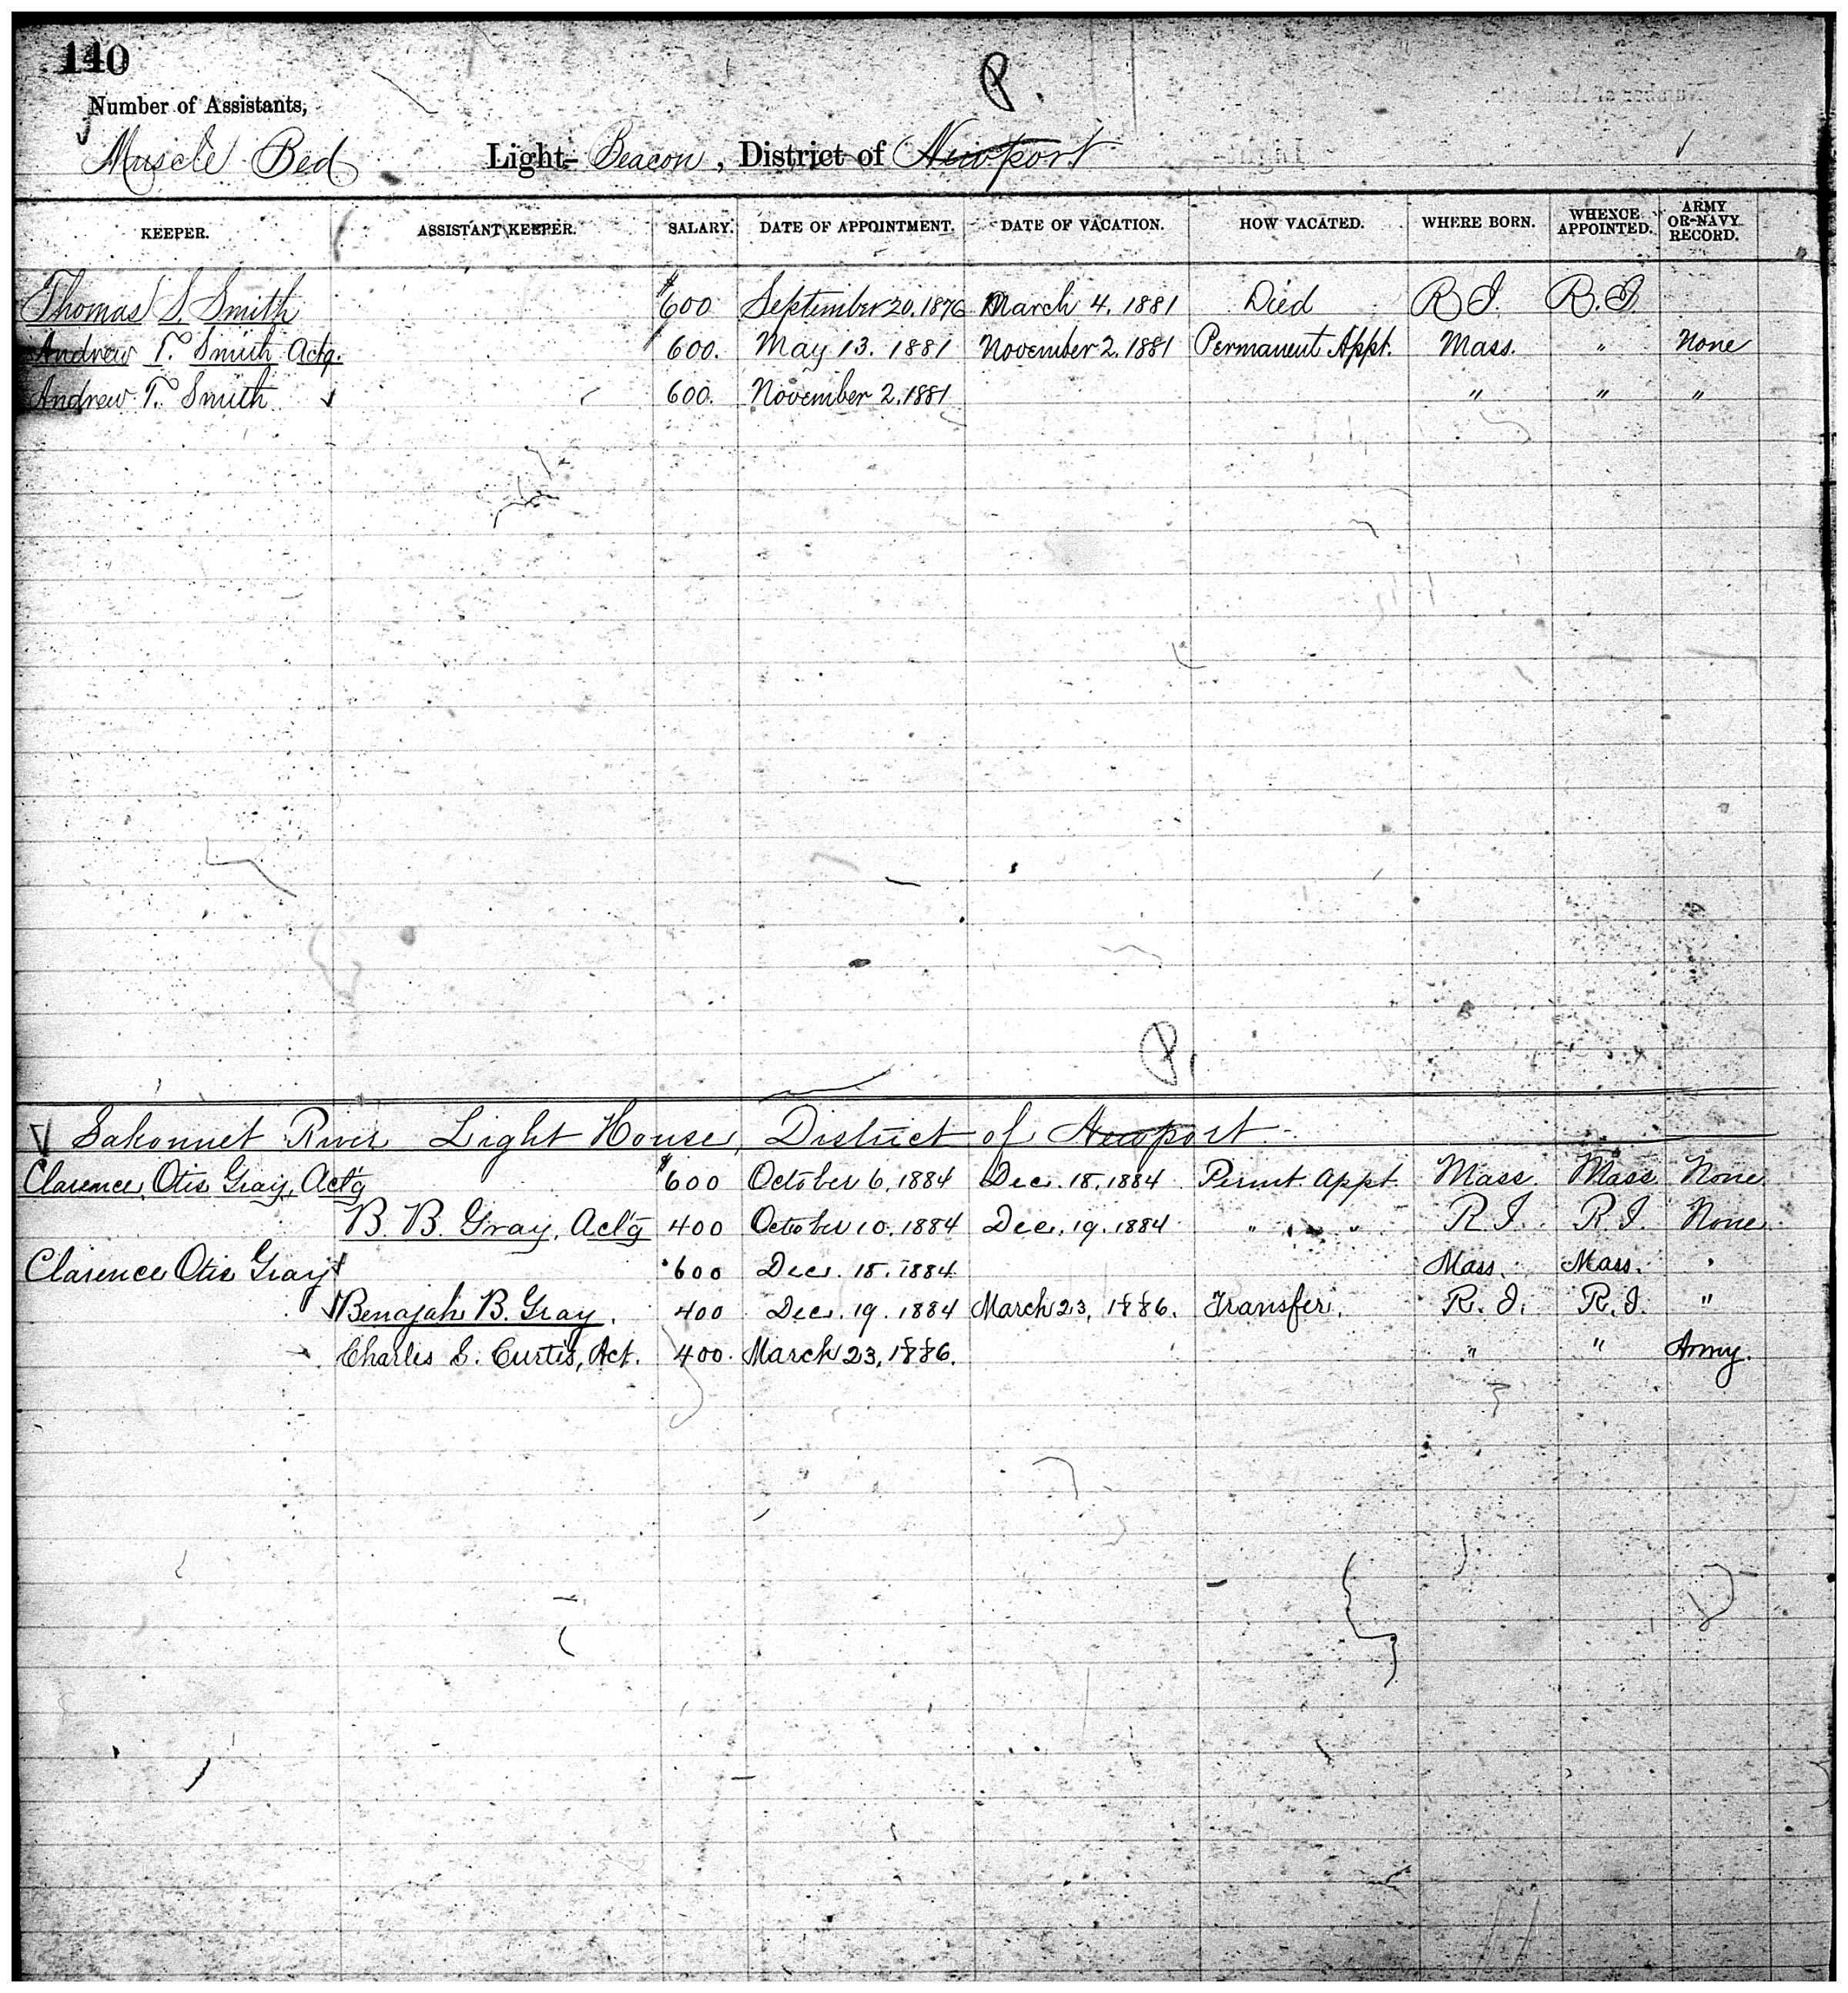 140
P.
Number of Assistants,
Muscle Bed Light-Beacon, District of Newport
KEEPER. ASSISTANT KEEPER. SALARY. DATE OF APPOINTMENT. DATE OF VACATION. HOW VACATED. WHERE BORN. WHENCE APPOINTED. ARMY OR NAVY RECORD.
Thomas S. Smith $600 September 20, 1876 March 4, 1881 Died R.I. R.I.
Andrew T. Smith Actg. 600. May 13. 1881 November 2. 1881 Permanent Appt. Mass. " None
Andrew T. Smith 600. November 2. 1881 " " "
P.
Sakonnet River Light House, District of Newport
Clarence Otis Gray, Act'g $600 October 6, 1884 Dec. 18, 1884 Permt. Appt. Mass Mass None
B. B. Gray, Act'g 400 October 10. 1884 Dec. 19. 1884 " " R.I. R.I. None
Clarence Otis Gray 600 Dec. 18. 1884 Mass. Mass. "
Benajah B. Gray. 400 Dec. 19. 1884 March 23, 1886. Transfer. R.I. R.I. "
Charles S. Curtis, Act. 400. March 23, 1886. " " Army.